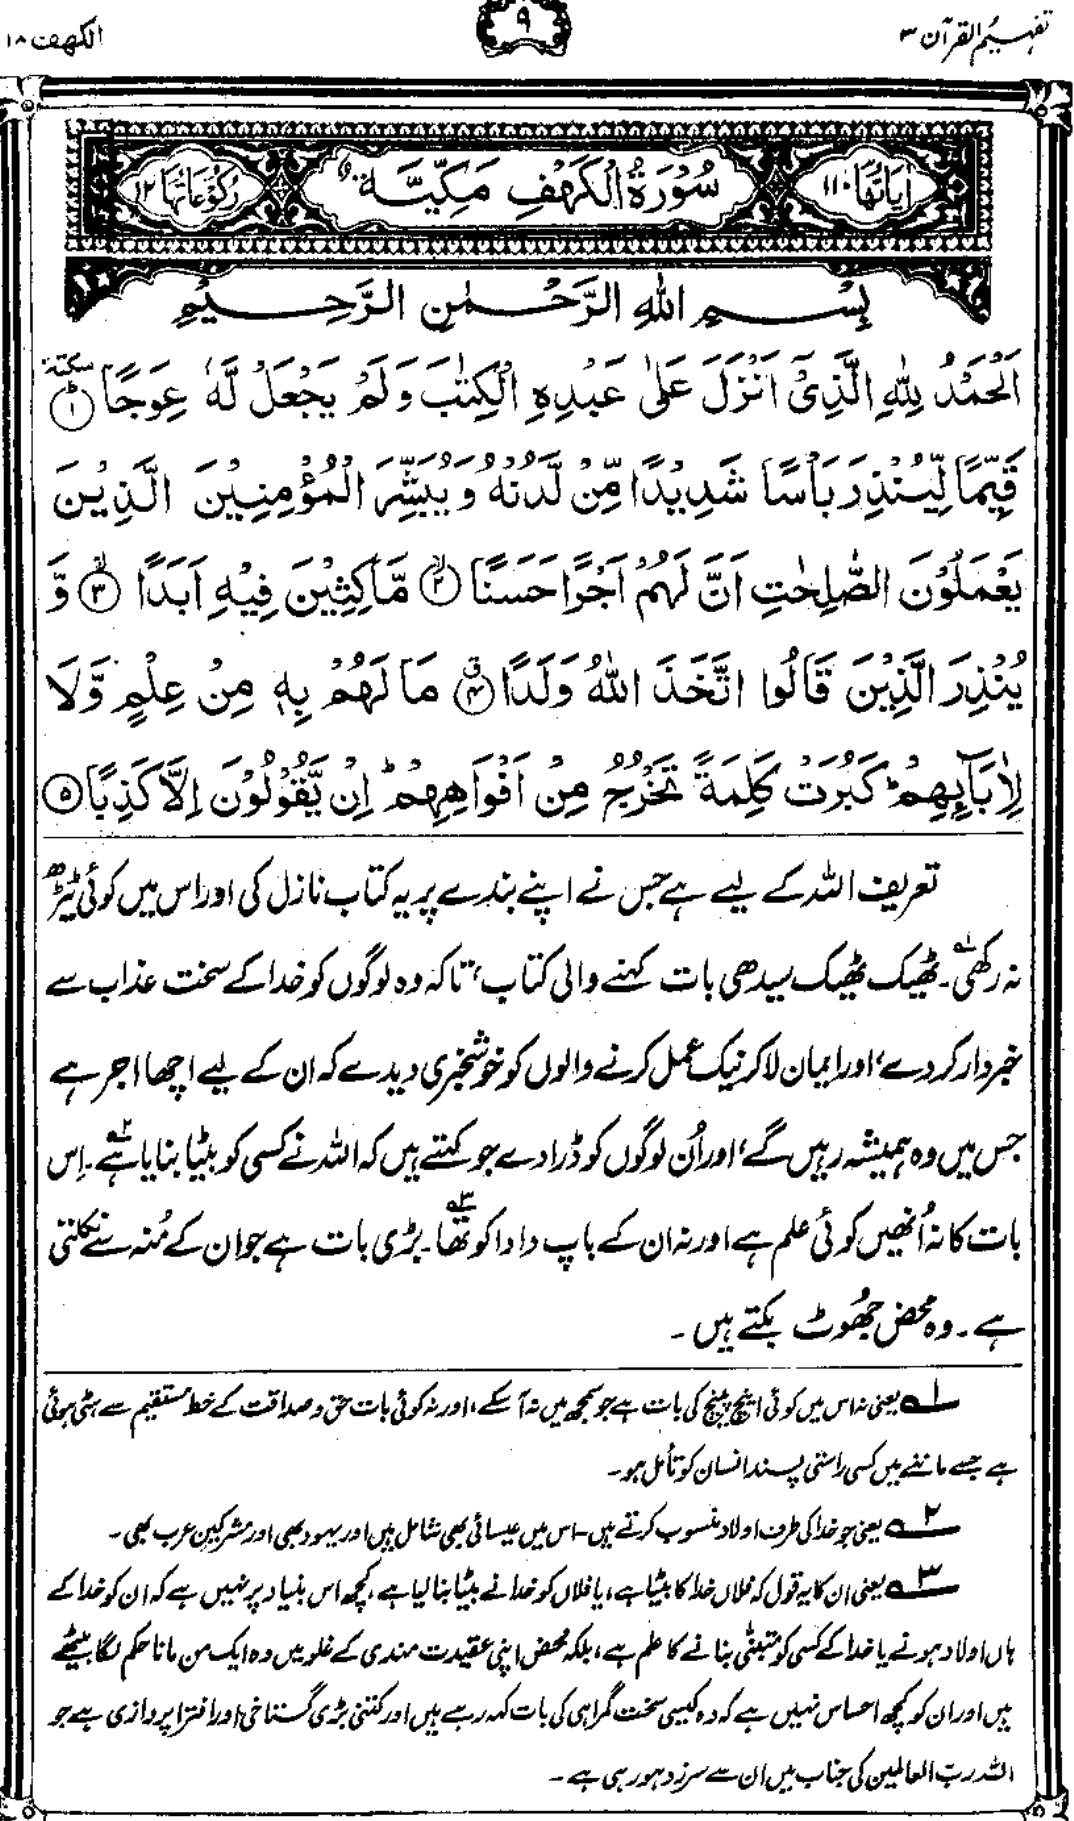 تفہیم القرآن ۳
۹
الکھف ۱۸
اٰیَاتُهَا ۱۱۰
سُوْرَةُ الْكَهْفِ مَكِّيَّةٌ
رُكُوْعَاتُهَا ۱۲
بِسْمِ اللهِ الرَّحْمٰنِ الرَّحِيْمِ
اَلْحَمْدُ لِلّٰهِ الَّذِیْۤ اَنْزَلَ عَلٰى عَبْدِهِ الْكِتٰبَ وَلَمْ يَجْعَلْ لَّهٗ عِوَجًا ۱ سكتة
قَيِّمًا لِّيُنْذِرَ بَاْسًا شَدِيْدًا مِّنْ لَّدُنْهُ وَيُبَشِّرَ الْمُؤْمِنِيْنَ الَّذِيْنَ
يَعْمَلُوْنَ الصّٰلِحٰتِ اَنَّ لَهُمْ اَجْرًا حَسَنًا ۲ مَّاكِثِيْنَ فِيْهِ اَبَدًا ۳ وَّ
يُنْذِرَ الَّذِيْنَ قَالُوا اتَّخَذَ اللهُ وَلَدًا ۴ مَا لَهُمْ بِهٖ مِنْ عِلْمٍ وَّلَا
لِاٰبَآئِهِمْ ؕ كَبُرَتْ كَلِمَةً تَخْرُجُ مِنْ اَفْوَاهِهِمْ ؕ اِنْ يَّقُوْلُوْنَ اِلَّا كَذِبًا ۵
تعریف اللہ کے لیے ہے جس نے اپنے بندے پر یہ کتاب نازل کی اور اس میں کوئی ٹیڑھ
نہ رکھی۱؎۔ ٹھیک ٹھیک سیدھی بات کہنے والی کتاب، تاکہ وہ لوگوں کو خدا کے سخت عذاب سے
خبردار کر دے، اور ایمان لا کر نیک عمل کرنے والوں کو خوشخبری دیدے کہ ان کے لیے اچھا اجر ہے
جس میں وہ ہمیشہ رہیں گے، اور اُن لوگوں کو ڈرا دے جو کہتے ہیں کہ اللہ نے کسی کو بیٹا بنایا ہے۲؎۔ اِس
بات کا نہ اُنھیں کوئی علم ہے اور نہ ان کے باپ دادا کو تھا۳؎۔ بڑی بات ہے جو ان کے مُنہ سے نکلتی
ہے۔ وہ محض جھُوٹ بکتے ہیں۔
۱؎ یعنی نہ اس میں کوئی اینچ پینچ کی بات ہے جو سمجھ میں نہ آ سکے، اور نہ کوئی بات حق و صداقت کے خط مستقیم سے ہٹی ہوئی
ہے جسے ماننے میں کسی راستی پسند انسان کو تامل ہو۔
۲؎ یعنی جو خدا کی طرف اولاد منسوب کرتے ہیں۔ اس میں عیسائی بھی شامل ہیں اور یہود بھی اور مشرکین عرب بھی۔
۳؎ یعنی ان کا یہ قول کہ فلاں خدا کا بیٹا ہے، یا فلاں کو خدا نے بیٹا بنا لیا ہے، کچھ اس بنیاد پر نہیں ہے کہ ان کو خدا کے
ہاں اولاد ہونے یا خدا کے کسی کو متبنّٰی بنانے کا علم ہے، بلکہ محض اپنی عقیدت مندی کے غلو میں وہ ایک من مانا حکم لگا بیٹھے
ہیں اور ان کو کچھ احساس نہیں ہے کہ وہ کیسی سخت گمراہی کی بات کہہ رہے ہیں اور کتنی بڑی گستاخی اور افترا پردازی ہے جو
اللہ ربّ العالمین کی جناب میں ان سے سرزد ہو رہی ہے۔